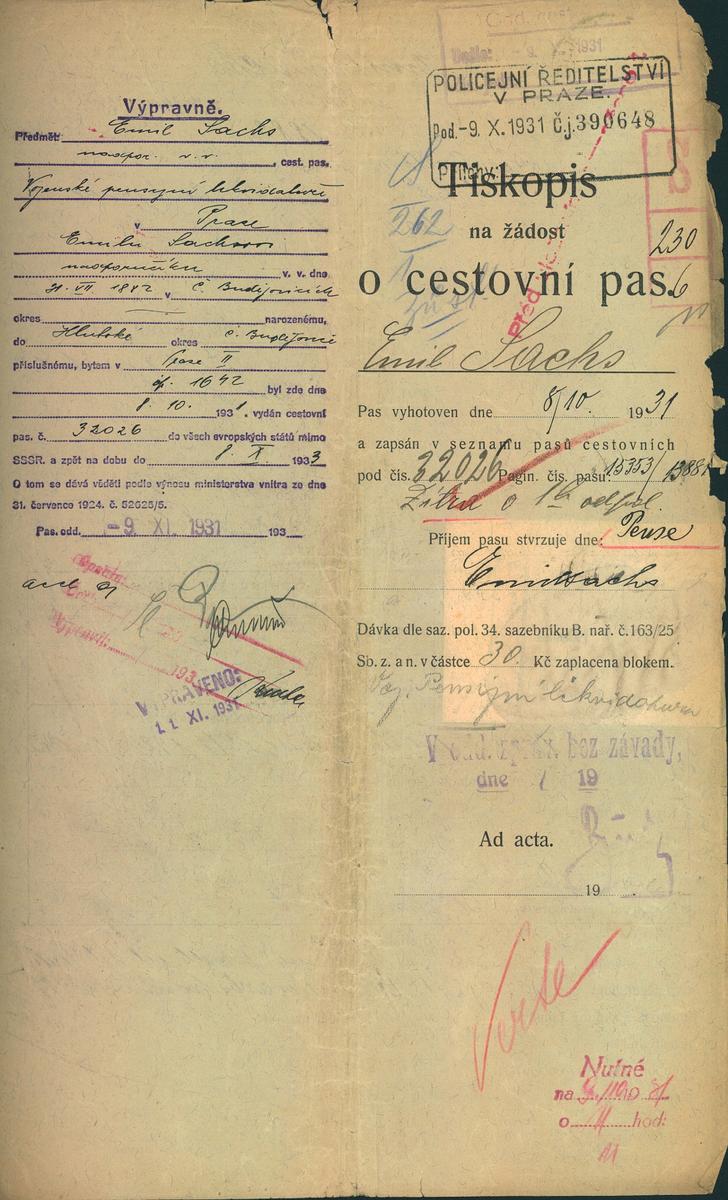 Výpravně.
Předmět: Emil Sachs
nadpor. v. v. , cest. pas.
Vojenské pensijní likvidatuře
v Praze
Emilu Sachsovi
nadporučíku v. v. dne
31. VII. 1872 v Č. Budějovicích
okres narozenému,
do Hluboké okres Č. Budějovice
příslušnému, bytem v Praze II
čp. 1642 byl zde dne
8. 10. 1931. vydán cestovní
pas. č. 32026 do všech evropských států mimo
SSSR. a zpět na dobu do 8. X 1933
O tom se dává věděti podle výnosu ministerstva vnitra ze dne
31. července 1924. č. 52625/5.
Pas. odd. -9. XI. 1931 193
193
VYPRAVENO:
11. XI. 1931
Došlo: -9. X. 1931
POLICEJNÍ ŘEDITELSTVÍ
V PRAZE.
Pod. -9. X. 1931 č.j. 390648
Přílohy:
Tiskopis
262
na žádost
230
o cestovní pas.
6
Emil Sachs
Pas vyhotoven dne 8/10. 1931
a zapsán v seznamu pasů cestovních
pod čís. 32026 Pagin. čís. pasu: 15353/
Zítra o 1h odpol.
Příjem pasu stvrzuje dne: Pense
Emil Sachs
Dávka dle saz. pol. 34. sazebníku B. nař. č. 163/25
Sb. z. a n. v částce 30 Kč zaplacena blokem.
Voj. Pensijní likvidatura
V odd. zpráv. bez závady,
dne 19
Ad acta.
19
Verte
Nutné
na 9/10 31
o 11 hod: